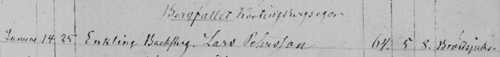 Bergfallet Kortingsbergsegor
Januari 14. 25 Enkling Backsberg. Lars Pehrsson 64. 5 8. Bröstsjuka.